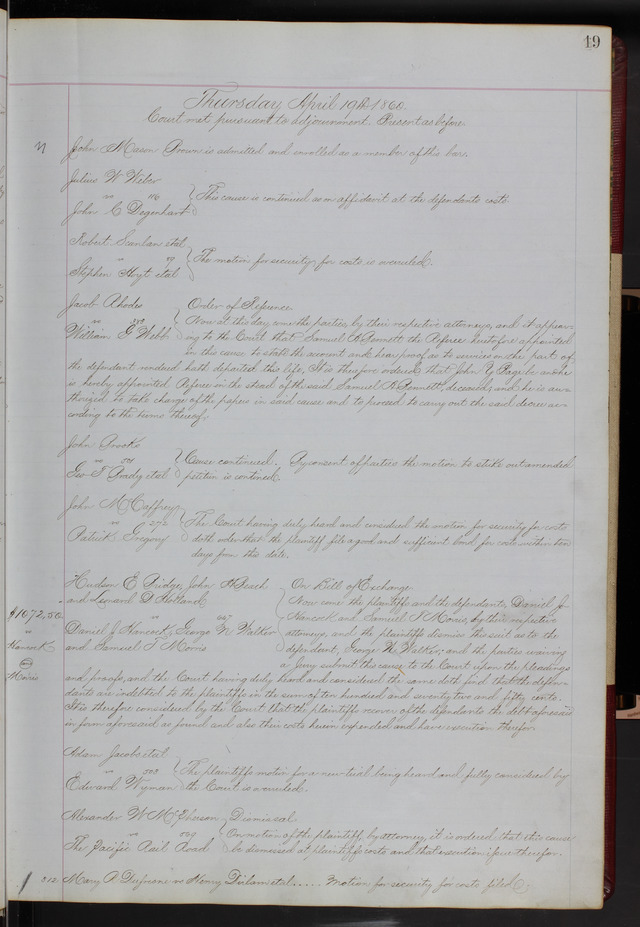 19
Thursday April 19th 1860
Court met pursuant to adjournment. Present as before.
John Mason Brown is admitted and enrolled as a member of this bar.
Julius W Weber
vs 116 This cause is continued as on affidavit at the defendants costs.
John C Degenhart
Robert Scanlan etal
vs The motion for security for costs is overruled.
Stephen Hoyt etal
Jacob Rhodes Order of Reference
vs Now at this day come the parties by their respective attorneys, and it appear-
William G Webb ing to the Court that Samuel the Referee heretofore appointed
in this cause to state the account and hear proof as to services on the part of
the defendant rendered hath departed this life, It is therefore ordered that John Y Page be and he
is hereby appointed Referee in the stead of the said Samuel deceased, and he is au-
thorized to take charge of the papers in said cause and to proceed to carry out the said decree ac-
cording to the terms thereof.
John
vs Cause continued. By consent of parties the motion to strike out amended
Geo T Brady etal petition is continued.
John McCaffrey
vs 272 The Court having duly heard and considered the motion for security for costs
Patrick Gregory doth order that the plaintiff file a good and sufficient bond for costs within ten
days from this date.
Hudson E Bridge, John H Beach On Bill of Exchange
and Leonard D Holland Now come the plaintiffs and the defendants, Daniel J
$1072,50 vs Hancock and Samuel T Morris, by their respective
Daniel J Hancock, George W Walker attorneys, and the plaintiffs dismiss this suit as to the
vs Hancock and Samuel T Morris defendant, George W Walker; and the parties waiving
Morris a jury submit this cause to the Court upon the pleadings
and proofs, and the Court having duly heard and considered the same doth find that the defen-
dants are indebted to the plaintiffs in the sum of ten hundred and seventy two and fifty cents.
It is therefore considered by the Court that the plaintiffs recover of the defendants the debt aforesaid
in form aforesaid as found and also their costs herein expended and have execution therefor.
Adam Jacobs etal
vs 503 The plaintiffs motion for a new trial being heard and fully considered by
Edward Wyman the Court is overruled.
Alexander W Dismissal
vs 529 On motion of the plaintiff by attorney, it is ordered that this cause
The Pacific Rail Road be dismissed at plaintiffs costs and that execution issue therefor.
312 Mary A vs Henry etal ..... Motion for security for costs filed.